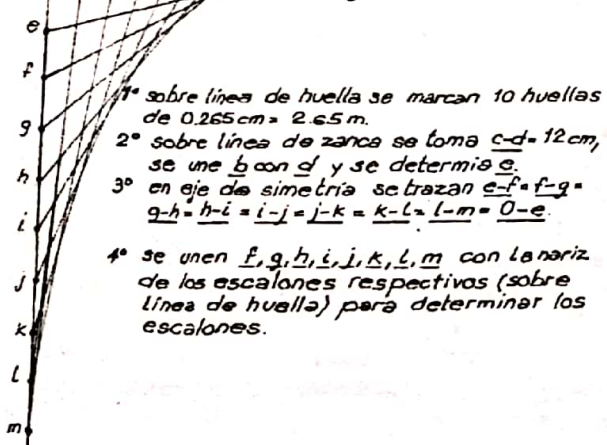 e
f
g
h
i
j
k
l
m
1º sobre línea de huella se marcan 10 huellas
de 0.265cm = 2.65m.
2º sobre línea de zanca se toma c-d = 12cm,
se une b con d y se determia e.
3º en eje de simetría se trazan e-f = f-g =
g-h = h-i = i-j = j-k = k-l = l-m = O-e.
4º se unen f, g, h, i, j, k, l, m con la nariz
de los escalones respectivos (sobre
línea de huella) para determinar los
escalones.